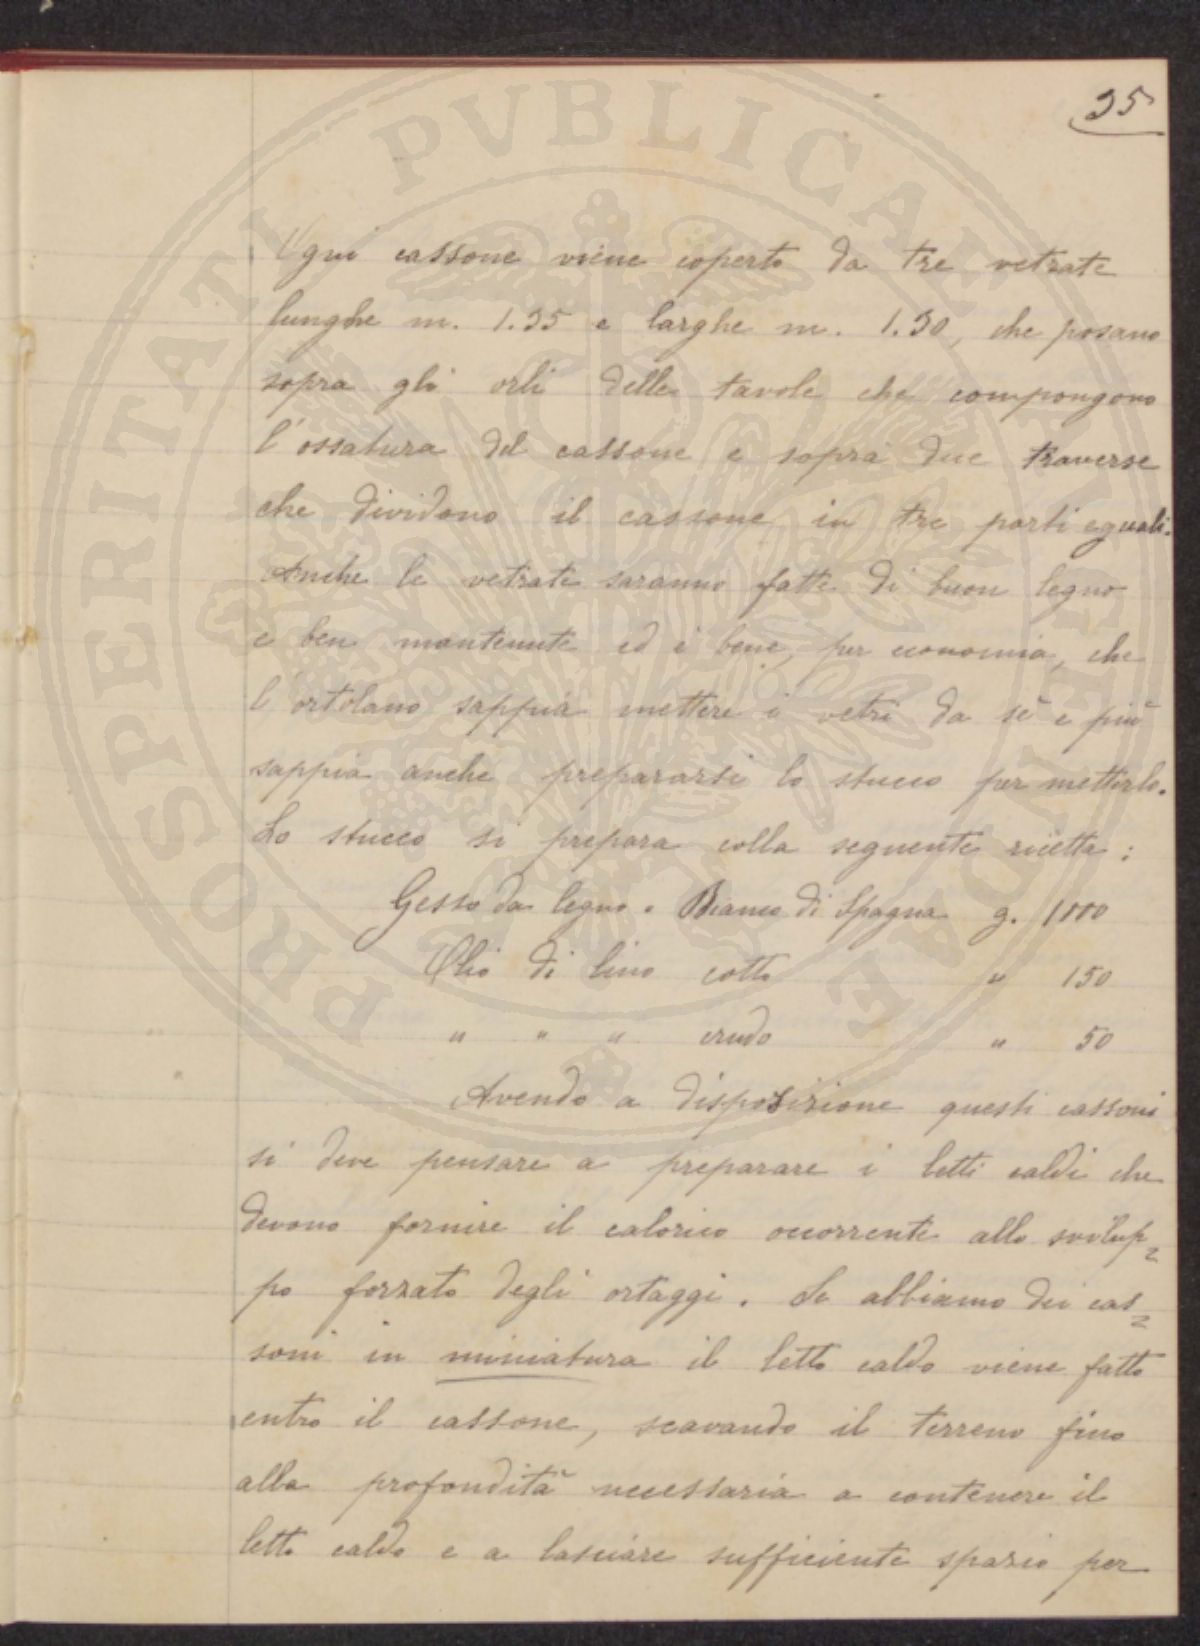 35
Ogni cassone viene coperto da tre vetrate
lunghe m. 1.35 e larghe m. 1.30, che posano
sopra gli orli delle tavole che compongono
l'ossatura del cassone e sopra due traverse
che dividono il cassone in tre parti eguali.
Anche le vetrate saranno fatte di buon legno
e ben mantenute ed è bene, per economia, che
l'ortolano sappia mettere i vetri da sè e più
sappia anche prepararsi lo stucco per metterlo.
Lo stucco si prepara colla seguente ricetta:
Gesso da legno o Bianco di Spagna g. 1000
Olio di lino cotto " 150
" " " crudo " 50
Avendo a disposizione questi cassoni
si deve pensare a preparare i letti caldi che
devono fornire il calorico occorrente allo svilup=
po forzato degli ortaggi. Se abbiamo dei cas=
soni in miniatura il letto caldo viene fatto
entro il cassone, scavando il terreno fino
alla profondità necessaria a contenere il
letto caldo e a lasciare sufficiente spazio per
PROSPERITATI PVBLICAE AVGENDAE